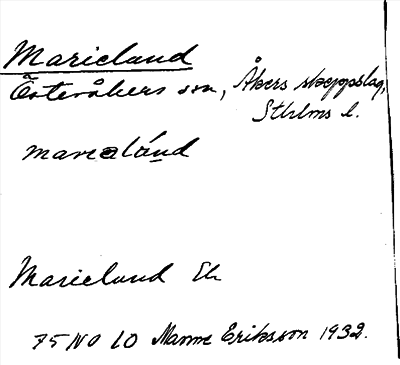 Marieland
Österåkers sn, Åkers skeppslag,
Sthlms l.
marealánd
Marieland Ek
75 NO 10 Manne Eriksson 1932.